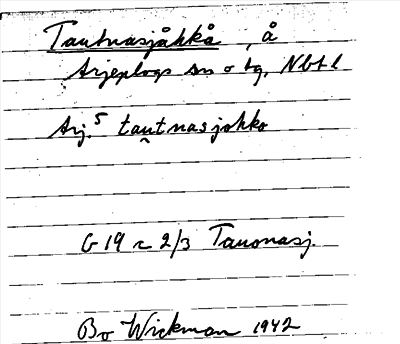 Tautnasjåkkå, å
Arjeplogs sn o tg, Nbtl
Arj.⁵ tau̯tnasjohko
G 19 r 2/3 Tauonasj.
Bo Wickman 1942